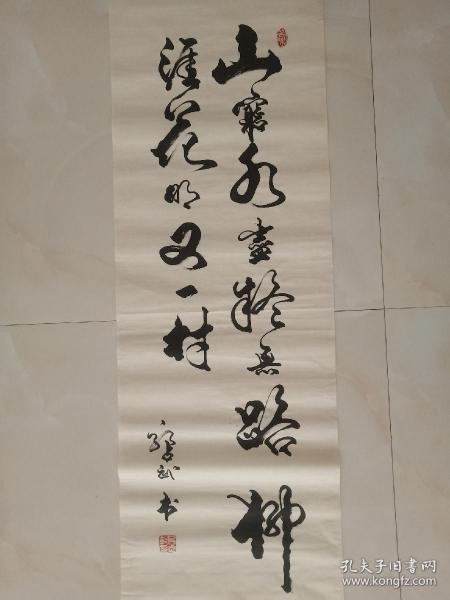 山穷水尽疑无路柳
暗花明又一村
武书
孔夫子旧书网
www.kongfz.com